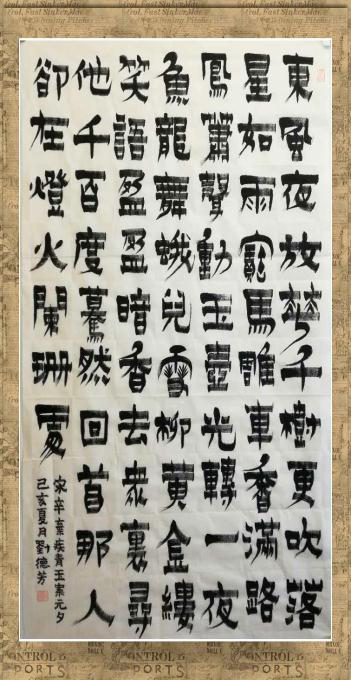 東風夜放華千樹更吹落
星如雨寶馬雕車香滿路
鳳簫聲動玉壺光轉一夜
魚龍舞蛾兒雪柳黃金縷
笑語盈盈暗香去衆裏尋
他千百度驀然回首那人
卻在燈火闌珊處
宋辛棄疾青玉案元夕
己亥夏月劉德芳